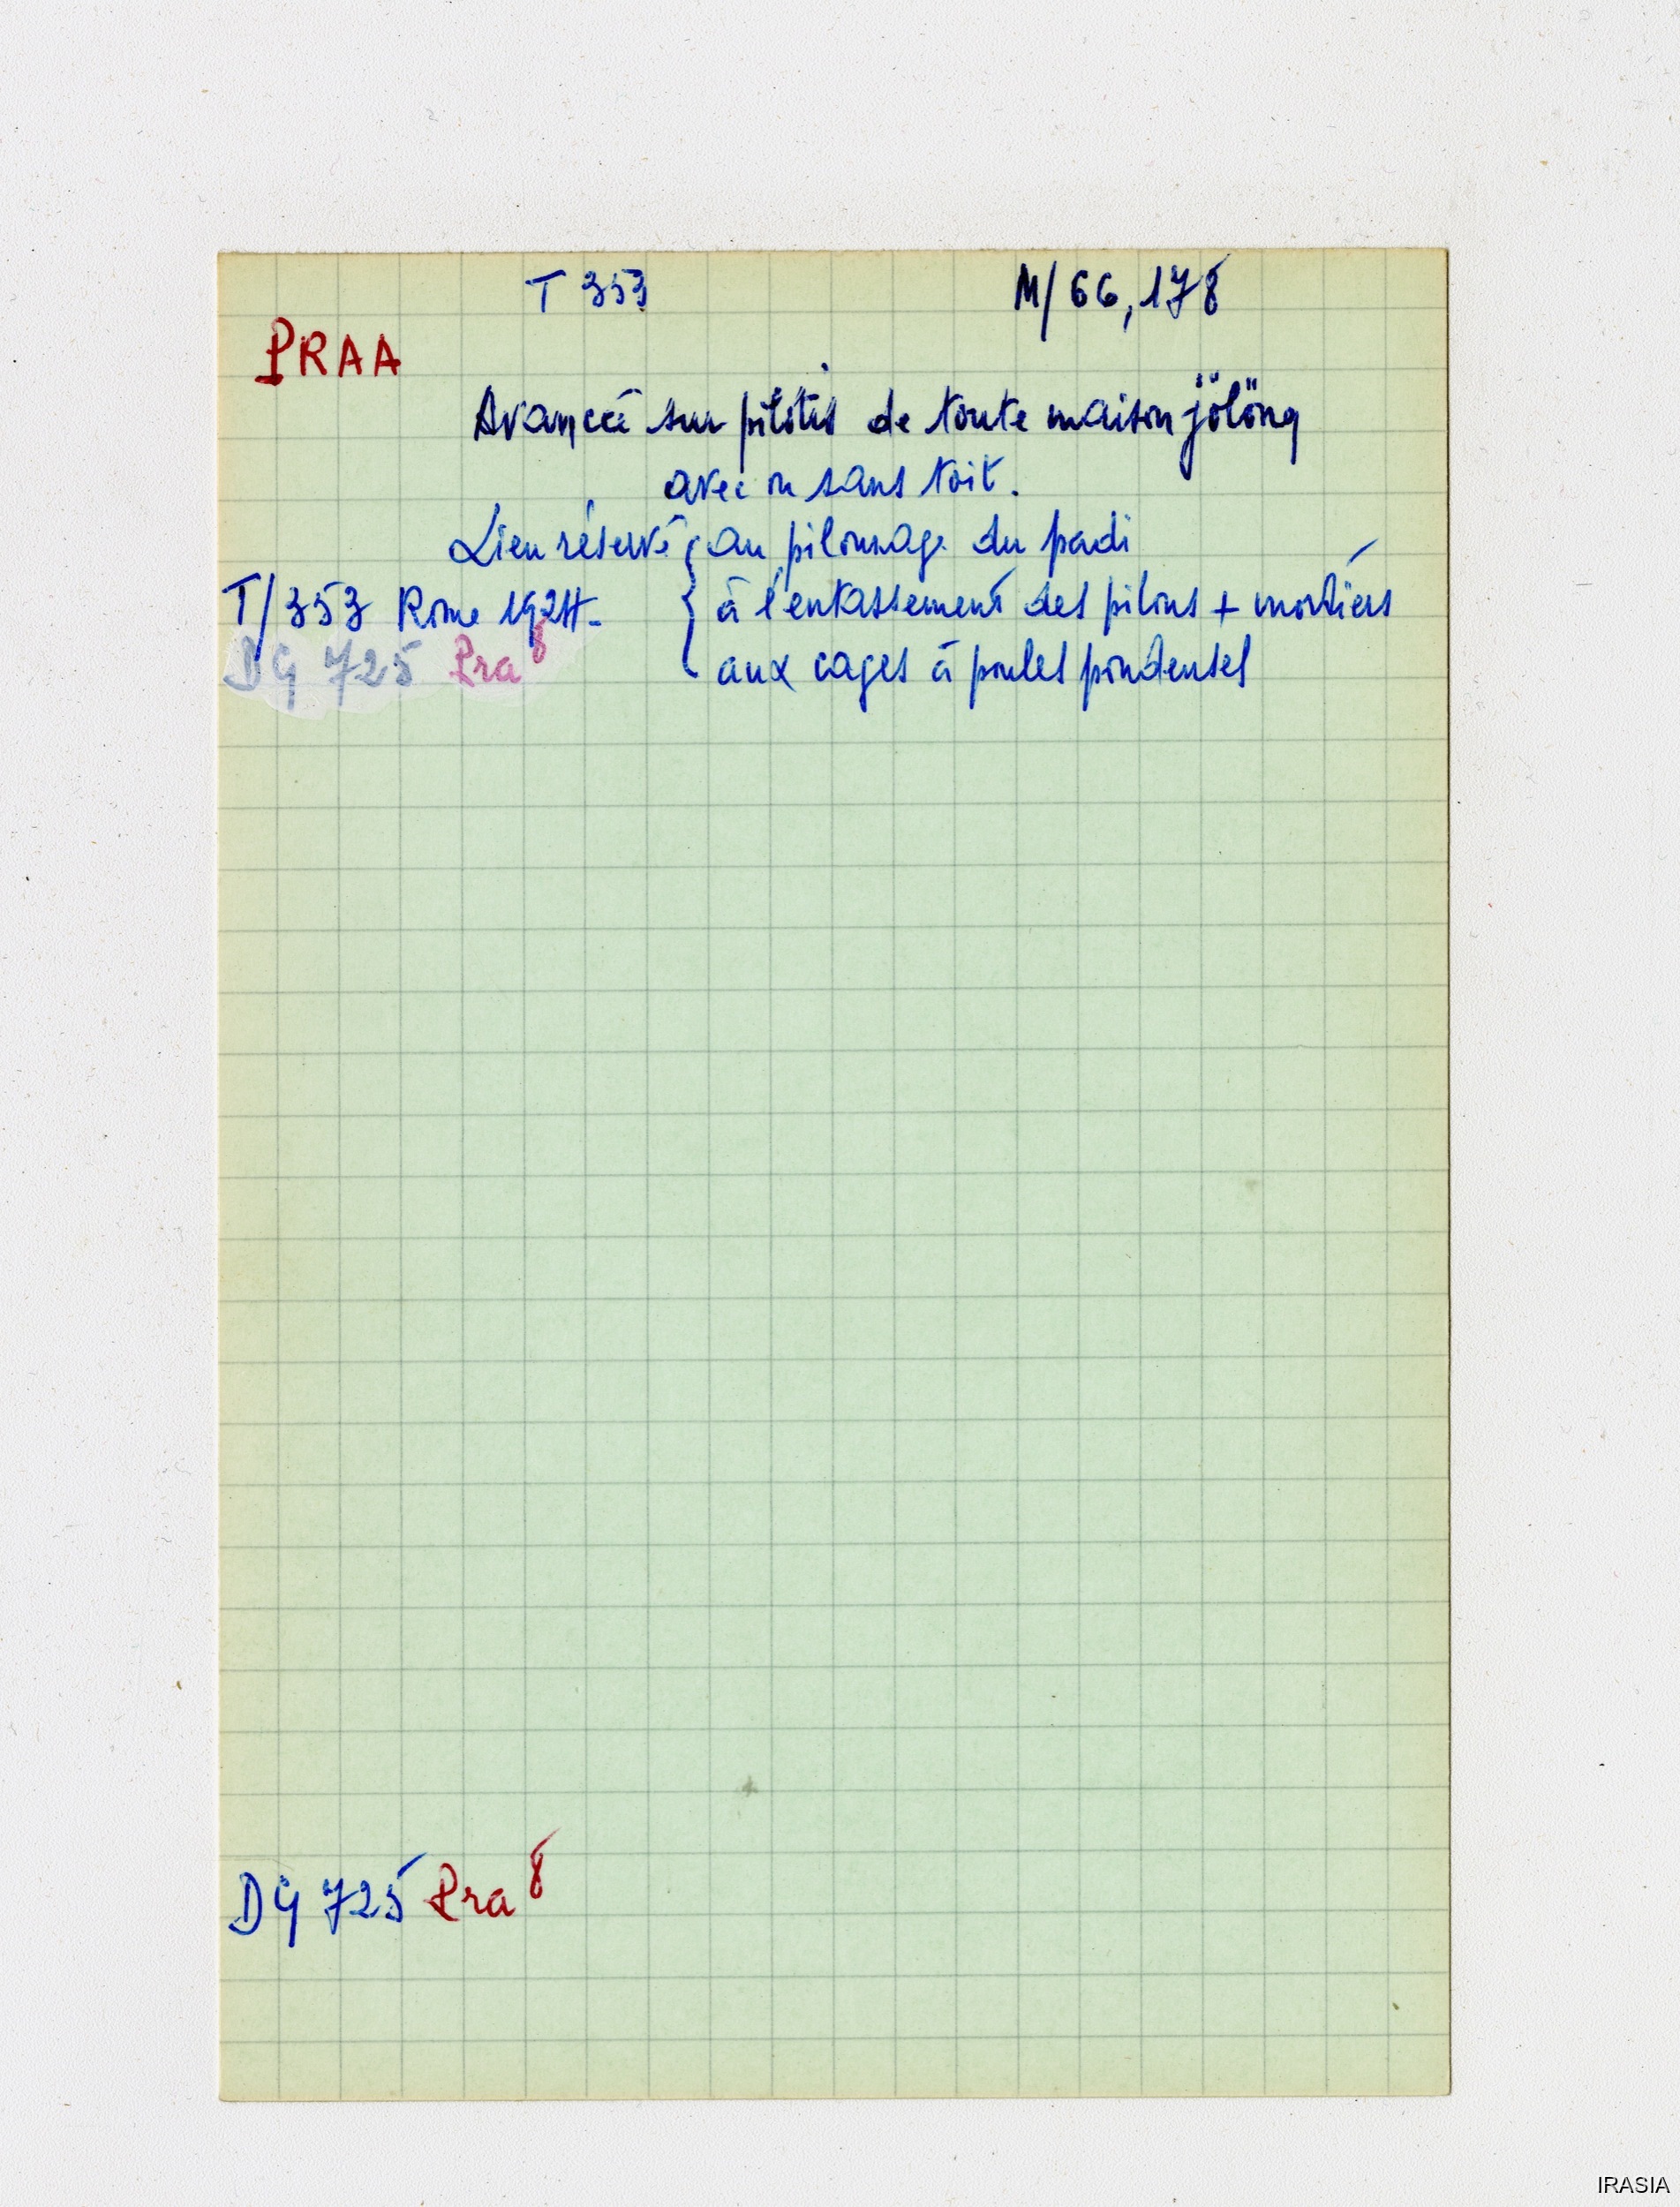 T 353 M/66,178
PRAA
Avancée sur pilotis de toute maison jölöng
avec ou sans toit.
Lieu réservé { au pilonnage du padi
T/353 Rome 1924- à l'entassement des pilons + mortiers
DG 725 Pra 8 aux cages à poules pondeuses
DG 725 Pra 8
IRASIA